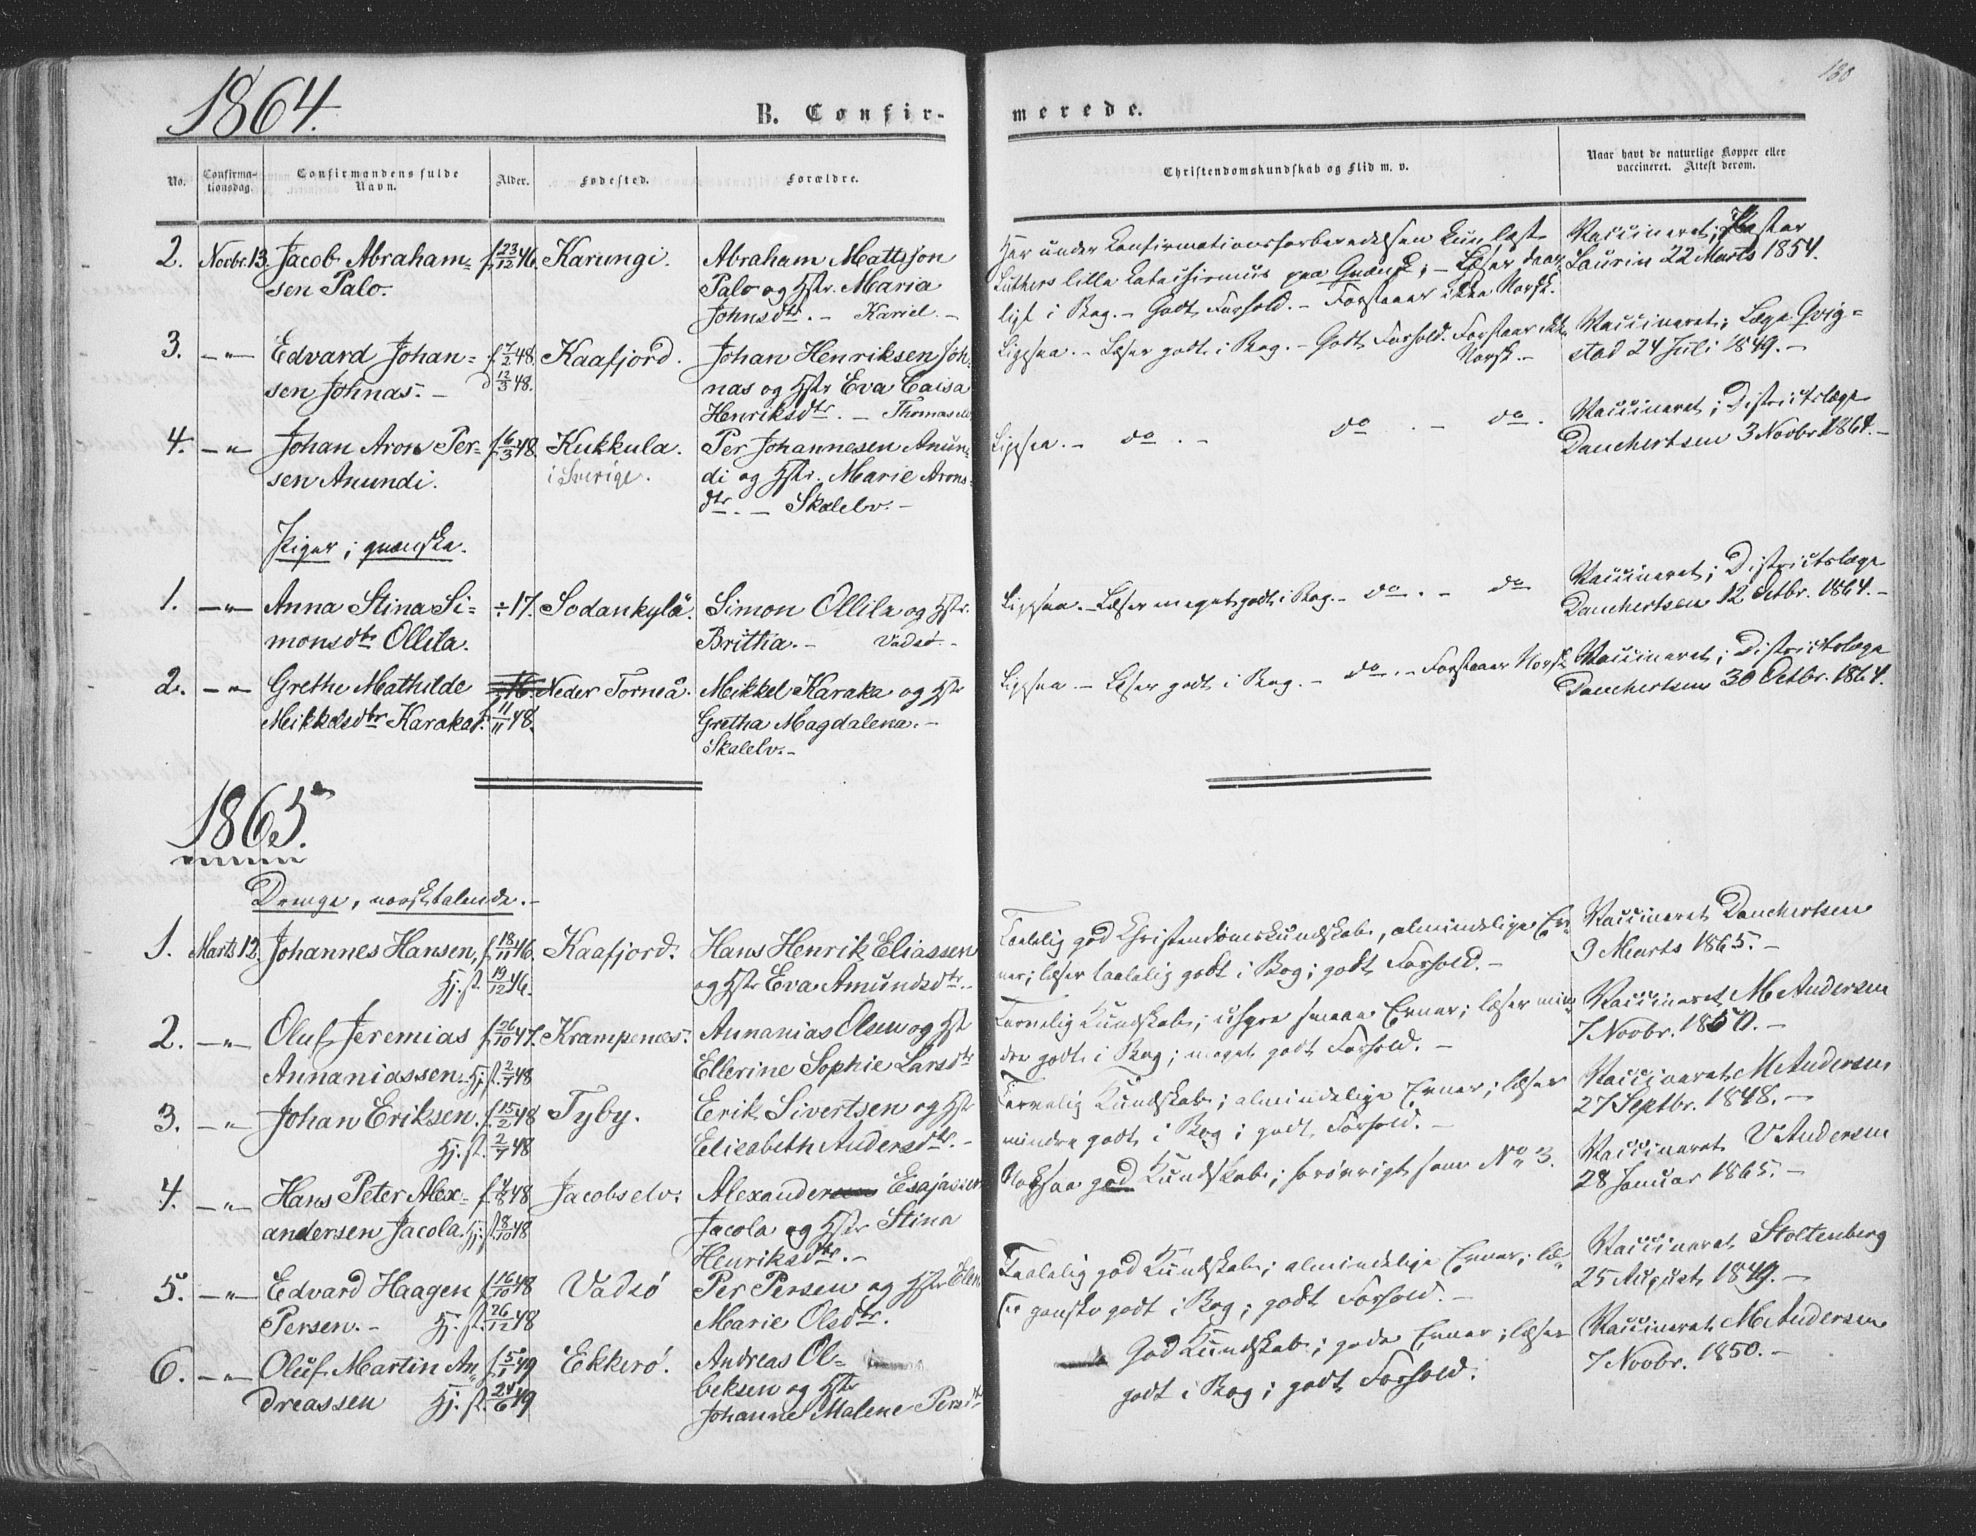 1864.
180
B. Confir-
merede.
No.
Confirma-
tionsdag.
Confirmandens fulde
Navn.
Alder.
Fødested.
Forældre.
Christendomskundskab og Flid m. v.
Naar havt de naturlige Kopper eller
vaccineret. Attest derom.
2. Novbr. 13. Jacob Abraham- f. 23/12 46. Karungi. Abraham Mattsson
sen Palo. Palo og Hstr. Maria
Johnsdtr. - Kariel. -
Har under Konfirmationsforberedelsen kun læst
Luthers lille Katechismus paa Qvænsk; - Læser daar-
ligt i Bog. - Godt Forhold. - Forstaaer ikke Norsk.
Vaccineret; Pastor
Laurin 22 Marts 1854.
3. -"- Edvard Johan- f. 7/2 48. Kaafjord. Johan Henriksen Joh-
sen Johnas. - d 12/3 48. nas og Hstr Eva Caisa
Henriksdtr. - Thomaselv
Ligesaa. - Læser godt i Bog. - Godt Forhold. Forstaar ikke
Norsk. -
Vaccineret; Læge Qvig-
stad 24 Juli 1849. -
4. -"- Johan Aron Per- f. 6/3 48. Kukkula. Per Johannesen Amun-
sen Amundi. i Sverige. di og Hstr. Marie Arons-
dtr. - Skalelv. -
Ligesaa. - do. - do - do.
Vaccineret; Districtslæge
Danchertsen 3 Novbr. 1864. -
Piger; qvænske.
1. -"- Anna Stina Si- ÷ 17. Sodankylä. Simon Ollila og Hstr.
monsdtr Ollila. Britha. - Vadsø. -
Ligesaa. - Læser meget godt i Bog. - do. - do
Vaccineret; Districtslæge
Danchertsen 12 Octbr. 1864. -
2. -"- Grethe Mathilde 16. Neder Torneå. Mikkel Karaka og Hstr
Mikkelsdtr Karaka f. 11/11 48. Gretha Magdalena. -
Skalelv. -
Ligesaa - Læser godt i Bog. - do. - Forstaaer Norsk
Vaccineret; Districtslæge
Danchertsen 30 Octbr. 1864.
1865.
Drenge, norsktalende. -
1. Marts 12. Johannes Hansen, f. 18/11 46. Kaafjord. Hans Henrik Eliassen
Hj. d. 19/12 46. og Hstr Eva Amundsdtr. -
Taalelig god Christendomskundskab, almindelige Ev-
ner; læser taalelig godt i Bog; godt Forhold. -
Vaccineret Danchertsen
9 Marts 1865. -
2. -"- Oluf Jeremias f. 26/10 47. Krampenæs. Annanias Olsen og Hstr
Annaniassen. Hj. d. 2/7 48 Ellerine Sophie Larsdtr
Tarvelig Kundskab; ligesaa Evner; læser min-
dre godt i Bog; meget godt Forhold. -
Vaccineret M Andersen
7 Novbr. 1850. -
3. -"- Johan Eriksen. f. 15/2 48 Tyby. Erik Sivertsen og Hstr
Hj. d. 2/7 48 Elisabeth Andersdtr. -
Tarvelig Kundskab; almindelige Evner; læser
mindre godt i Bog; godt Forhold. -
Vaccineret M Andersen
27 Septbr. 1848. -
4. -"- Hans Peter Alex- f. 4/8 48 Jacobselv. Alexander Esajassen
andersen Jacola. Hj. d. 8/10 48 Jacola og Hstr Stina
Henriksdtr. -
god Kundskab; forøvrigt som No 3.
Vaccineret V Andersen
28 Januar 1865. -
5. -"- Edvard Haagen f. 16/10 48 Vadsø Per Persen og Hstr Elen
Persen. - Hj. d. 26/12 48 Marie Olsdtr.
Taalelig god Kundskab; almindelige Evner; læ-
ser ganske godt i Bog; godt Forhold. -
Vaccineret Stoltenberg
25 August 1849. -
6. -"- Oluf Martin An- f. 5/1 49 Ekkerø. Andreas Ol-
dreassen Hj. d. 24/6 49 beksen og Hstr
Johanne Malene Persdtr
God Kundskab; gode Evner; læser
godt i Bog; godt Forhold.
Vaccineret M Andersen
7 Novbr. 1850. -